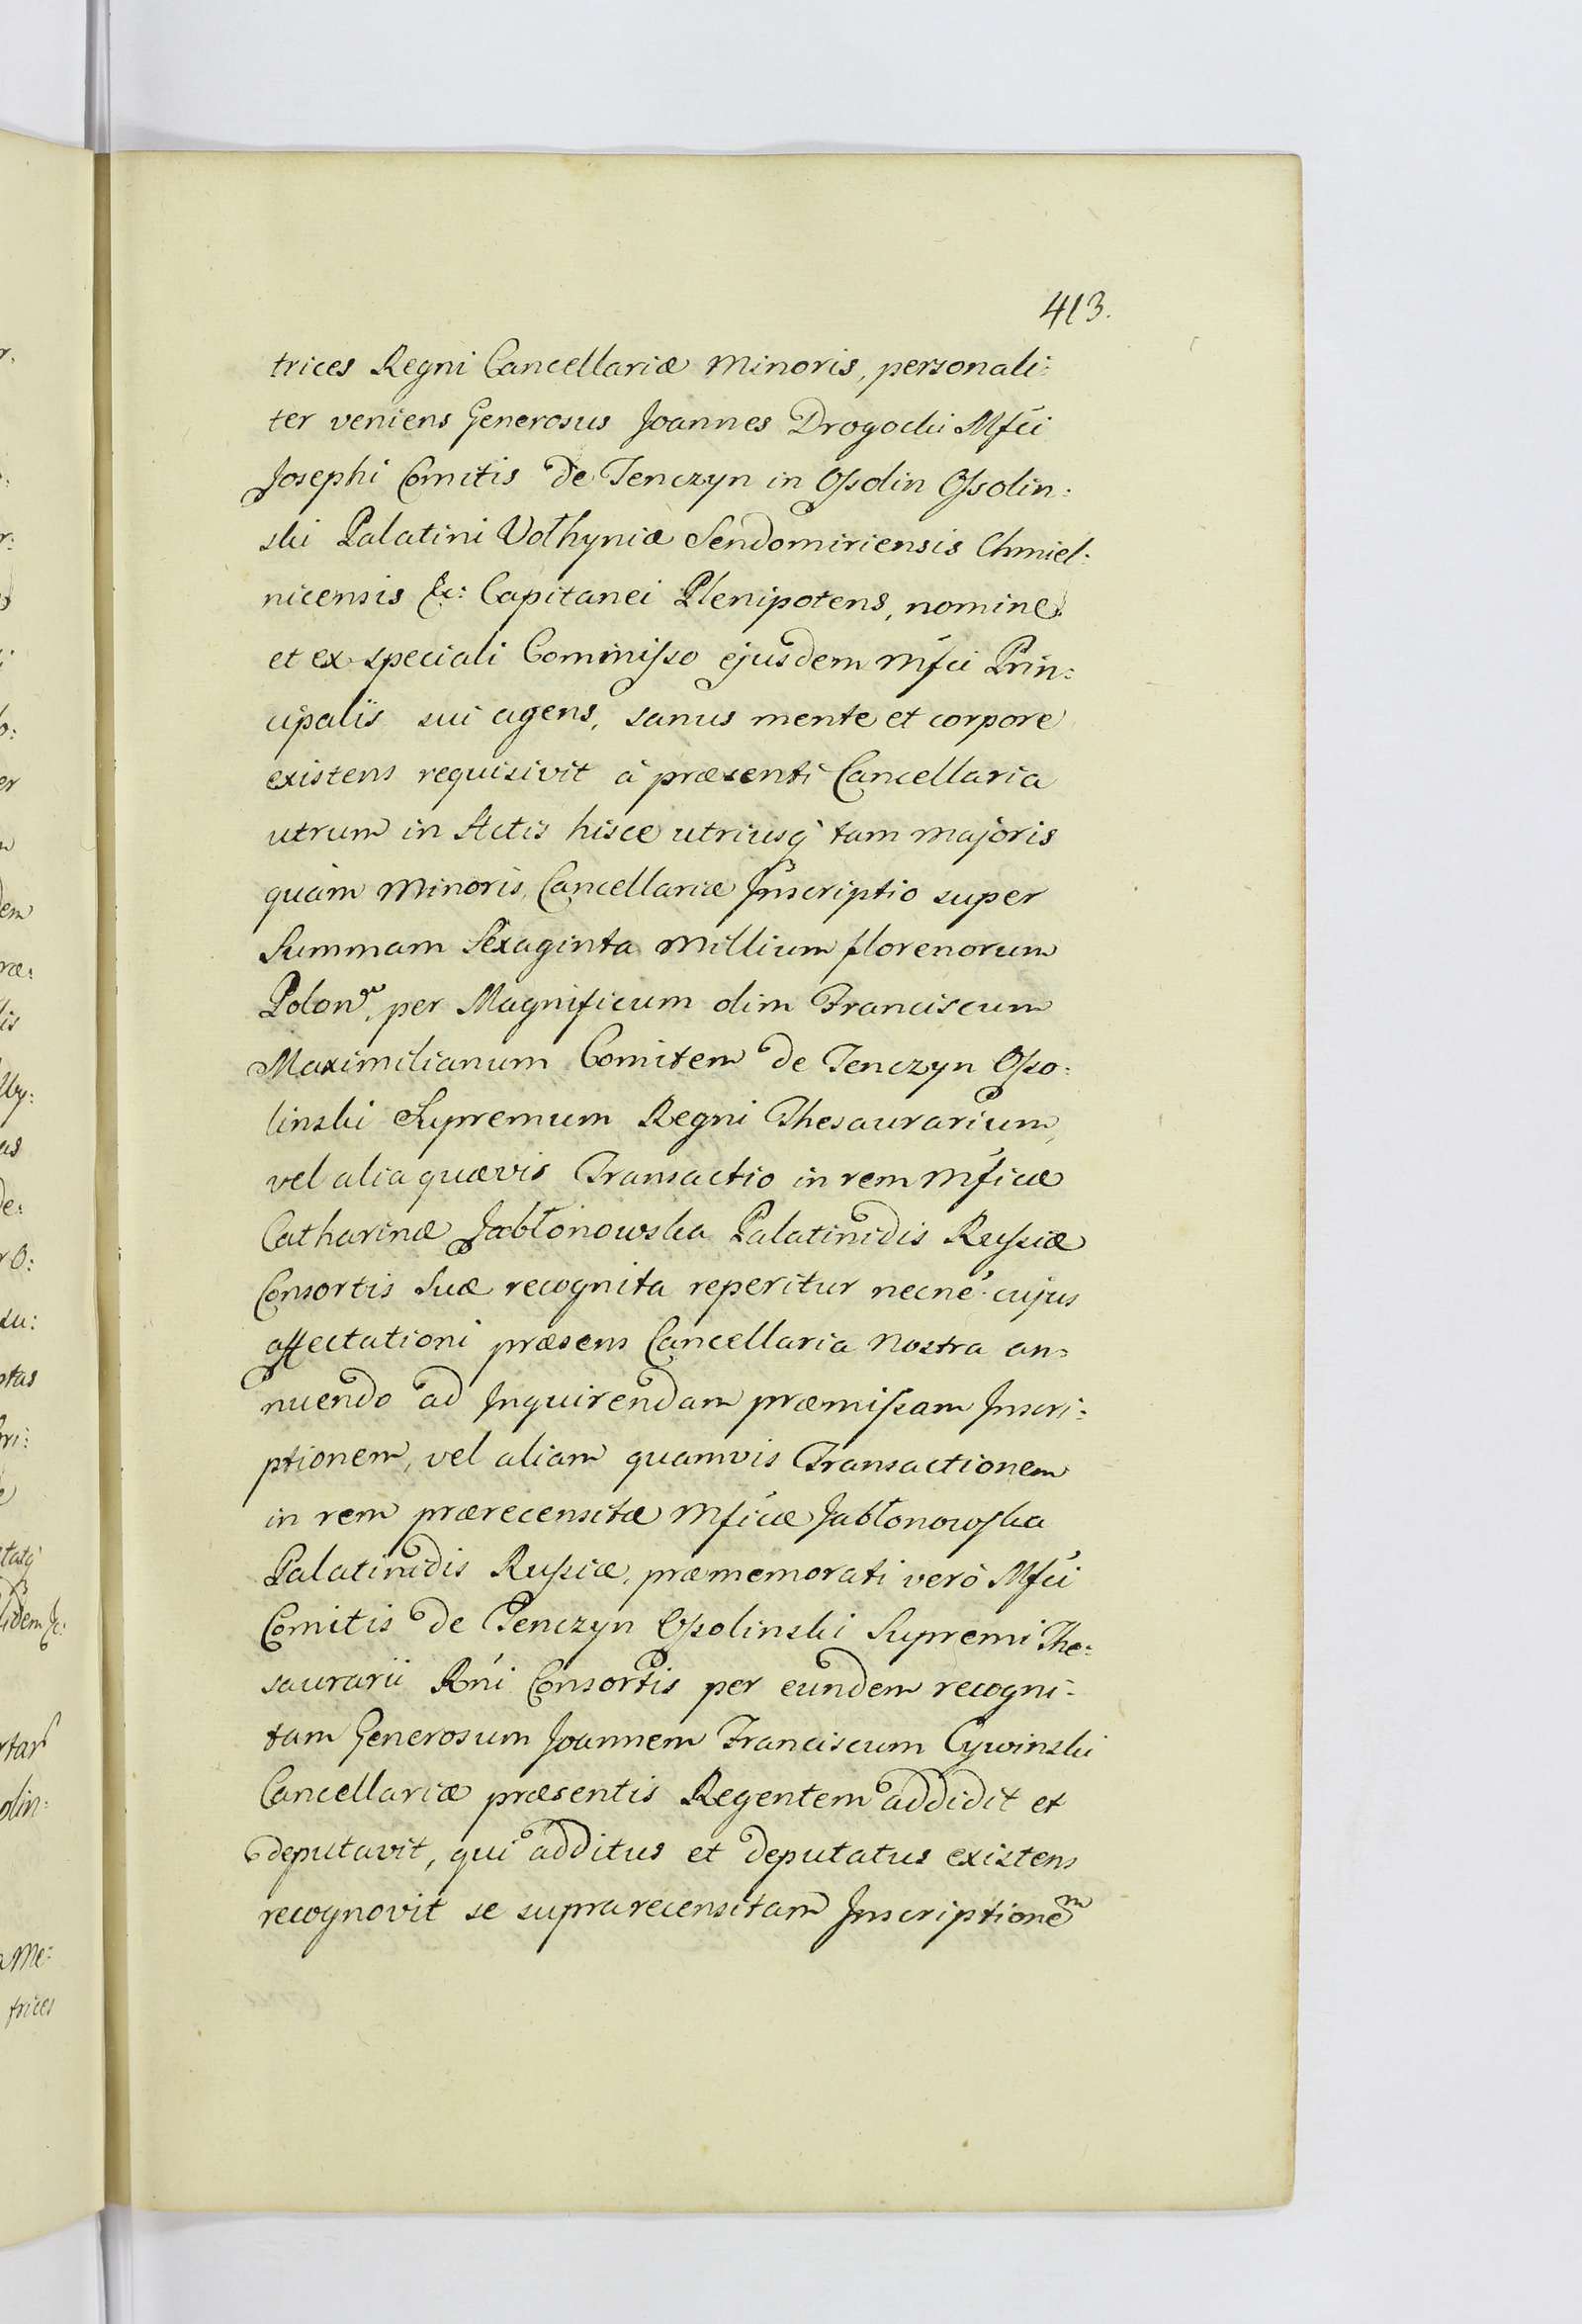 413.
trices Regni Cancellariæ Minoris, personali:
ter veniens Generosus Joannes Drogocki Mfci
Josephi Comitis de Tenczyn in Ossolin Ossolin:
ski Palatini Vołhyniæ Sendomiriensis Chmiel:
nicensis &c: Capitanei Plenipotens, nomine
et ex speciali Commisso ejusdem Mfci Prin:
cipalis sui agens, sanus mente et corpore
existens requisivit á præsenti Cancellaria
utrum in Actis hisce utriusq́ tam majoris
quám Minoris, Cancellariæ Inscriptio super
Summam Sexaginta Millium florenorum
Polon, per Magnificum olim Franciscum
Maximilianum Comitem de Tenczyn Osso:
linski Supremum Regni Thesaurarium,
vel alia quævis Transactio in rem Mficæ
Catharinæ Jabłonowska Palatinidis Russiæ
Consortis Suæ recognita reperitur necné. cujus
affectationi præsens Cancellaria Nostra an:
nuendo ad Inquirendam præmissam Inscri:
ptionem, vel aliam quamvis Transactionem
in rem prærecensitæ Mficæ Jabłonowska
Palatinidis Russiæ, præmemorati veró Mfci
Comitis de Tenczyn Ossolinski Supremi The:
saurarii Rńi Consortis per eundem recogni:
tam Generosum Joannem Franciscum Cywinski
Cancellariæ præsentis Regentem addidit et
deputavit, qui additus et deputatus existens
recognovit se suprarecensitam Inscriptionem